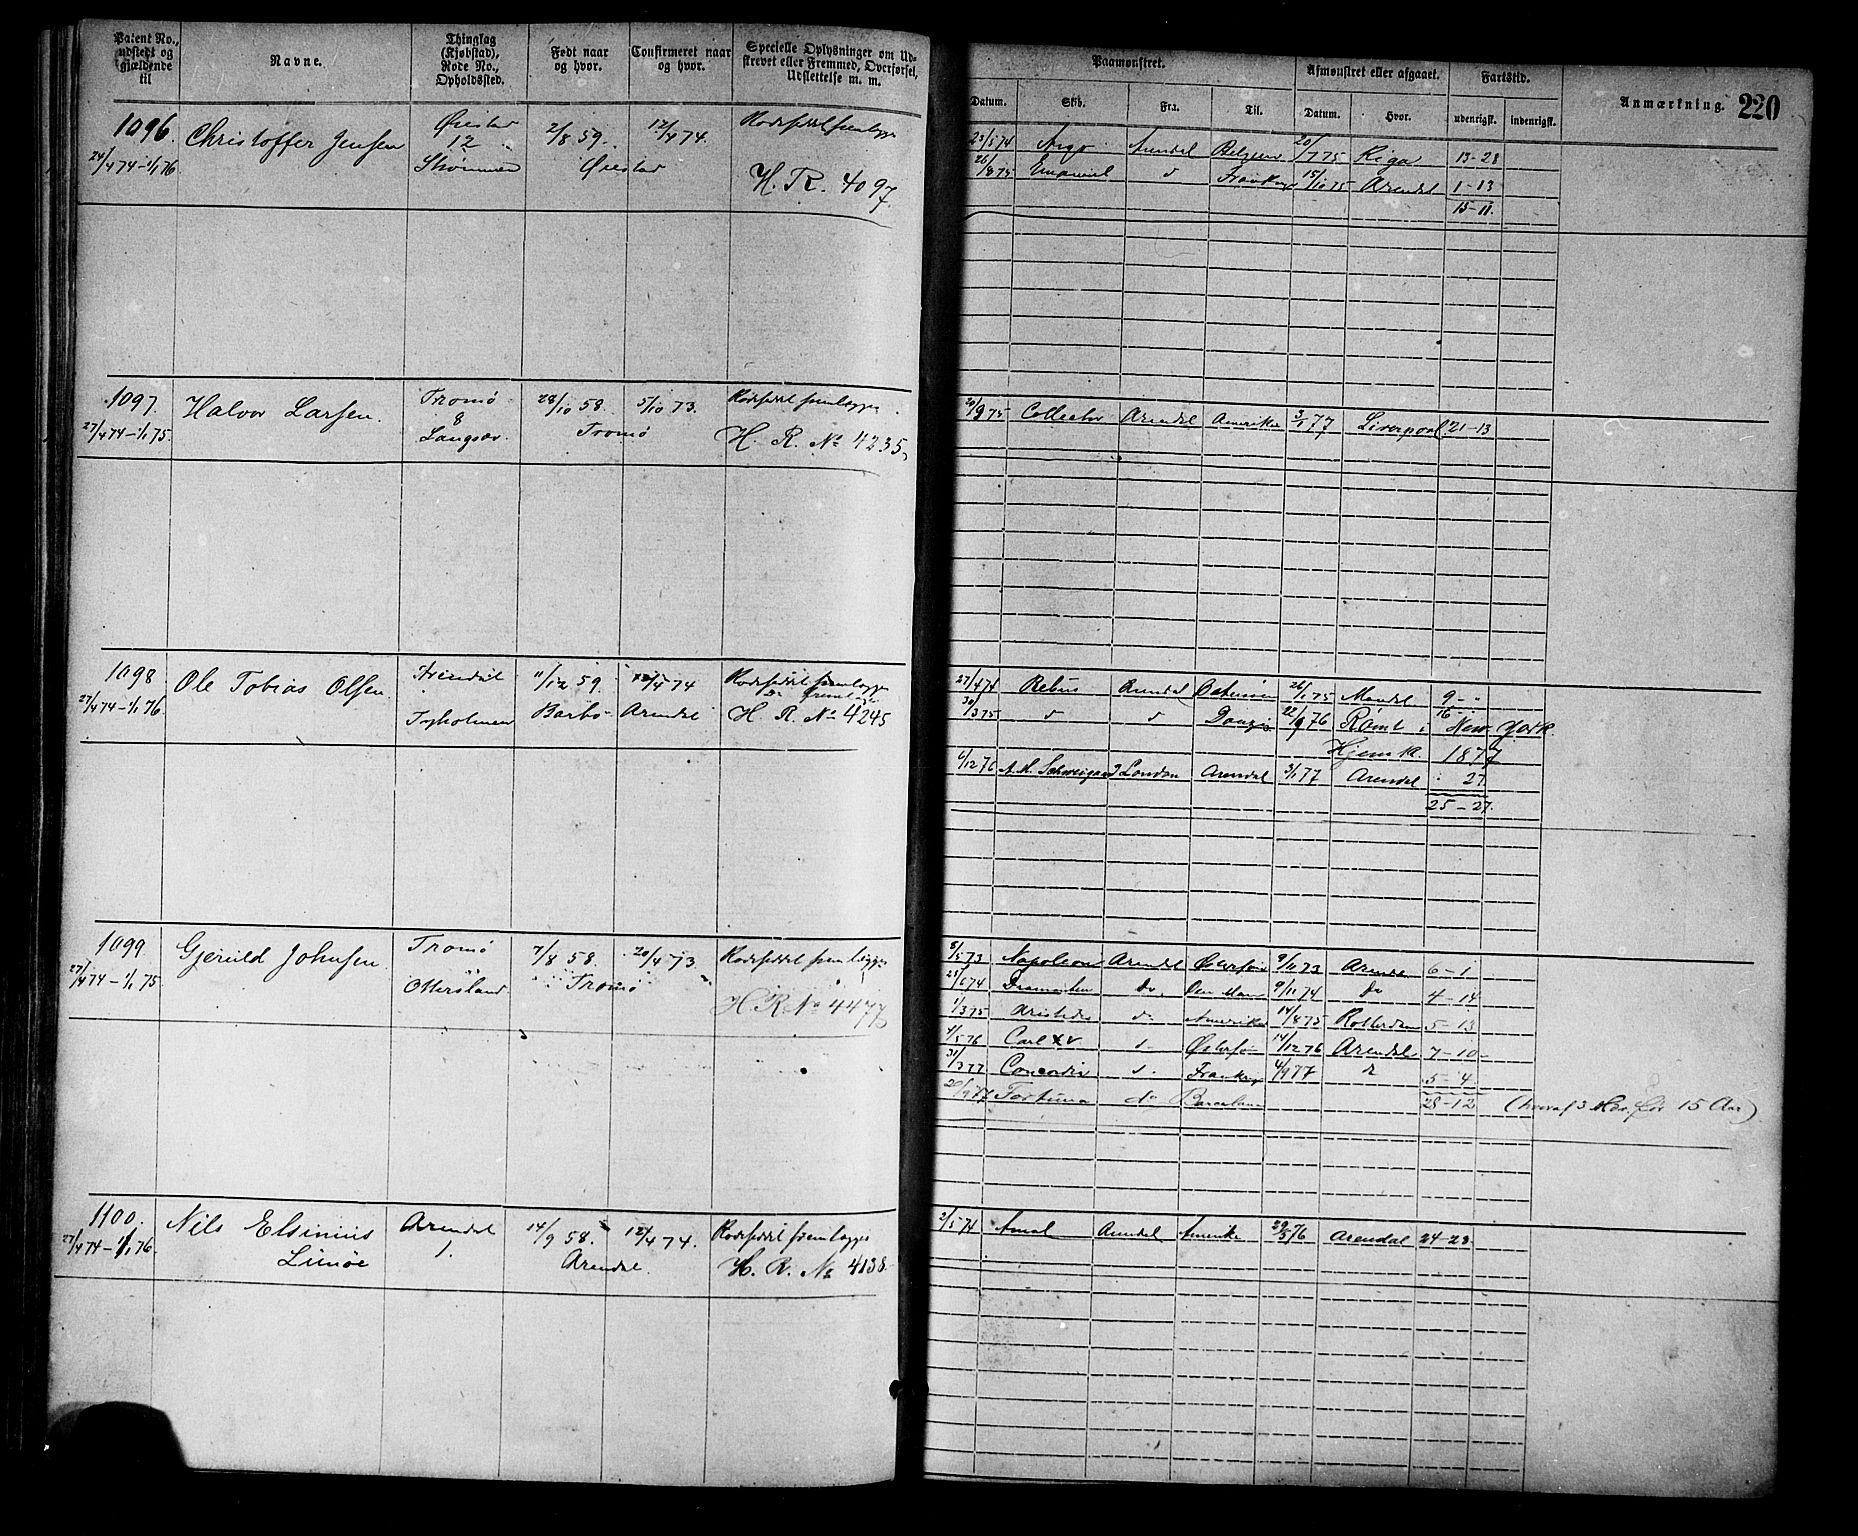 Patent No., udstedt og gjældende til
Navne.
Thinglag (Kjøbstad), Rode No., Opholdssted.
Født naar og hvor.
Confirmeret naar og hvor.
Specielle Oplysninger om Udskrevet eller Fremmed, Overførsel, Udslettelse m. m.
Paamønstret.
Afmønstret eller afgaaet.
Fartstid.
Anmærkning.
220
Datum.
Skib.
Fra.
Til.
Datum.
Hvor.
udenrigsk.
indenrigsk.
1096.
Christoffer Jensen
Øiestad
12
Strømmen
2/8 59.
12/4 74.
Øiestad
24/4 74–1/1 76
H. R. 4097.
23/5 74 Argo Arendal 20/7 75 Riga 13–28
26/8 75 Frankrig 15/10 75 Arendal 1–13
15–11.
1097.
Halvor Larsen.
Tromø
8
28/10 58.
5/10 73.
Tromø
27/4 74–1/1 75.
H. R. No 4235.
20/9 75 Collector Arendal Amerika 3/1 77 Liverpool 21–13
1098
Ole Tobias Olsen.
11/12 59.
12/4 74
27/4 74–1/1 76
Barbo
Arendal
H. R. No 4245
27/4 74 Rebus Arendal 26/1 75 Mandal 9 – "
30/3 75 d d Danzig 22/9 76 Rømt i New York.
16
Hjemk. 1877
6/12 76 London Arendal 3/1 77 Arendal 27
25–27.
1099
Gjeruld Johnsen
Tromø
7/8 58.
20/4 73.
27/4 74–1/1 75
Tromø
H. R. No 4477
8/5 73 Napoleon Arendal Østersøen 9/11 73 Arendal 6–1
Dramatten do. 9/11 74 do 4–14
1/3 75 Aristides d. Amerika 14/8 75 Rotterdam 5–13
4/5 76 Carl XV d. Østersøen 14/12 76 Arendal 7–10
31/3 77 Concordia d. Frankrig 4/9 77 5–4
20/9 77 Fortuna do Barcelona 28–12 (hvoraf 3 Md. før 15 Aar)
1100.
Nils Elsinius
Linnøe
Arendal
1.
14/9 58.
12/4 74.
Arendal.
27/4 74–1/1 76.
H. R. No 4138.
2/5 74 Amal Arendal Amerika 29/5 76 Arendal 24–28